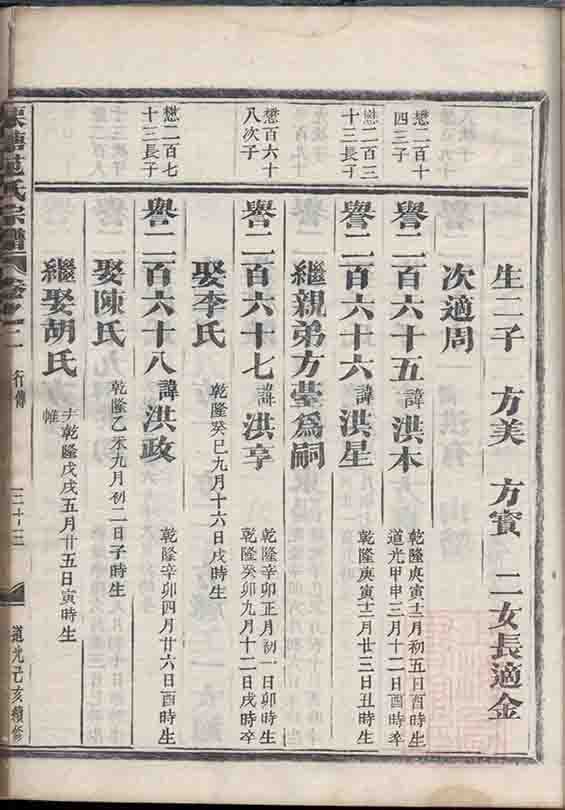 生二子 方美 方賓 二女長適金
次適周
懋二百十四三子
譽二百六十五 諱洪本 乾隆庚寅十二月初五日酉時生 道光甲申三月十二日酉時卒
懋二百三十三長子
譽二百六十六 諱洪星 乾隆庚寅十二月廿三日丑時生
繼親弟方瑩爲嗣
懋百六十八次子
譽二百六十七 諱洪亨 乾隆辛卯正月初一日卯時生 乾隆癸卯九月十二日戌時卒
娶李氏 乾隆癸巳九月十六日戌時生
懋二百七十三長子
譽二百六十八 諱洪政 乾隆辛卯四月廿六日酉時生
娶陳氏 乾隆乙未九月初二日子時生
繼娶胡氏 乾隆戊戌五月廿五日寅時生
范氏宗譜 行傳 道光己亥續修